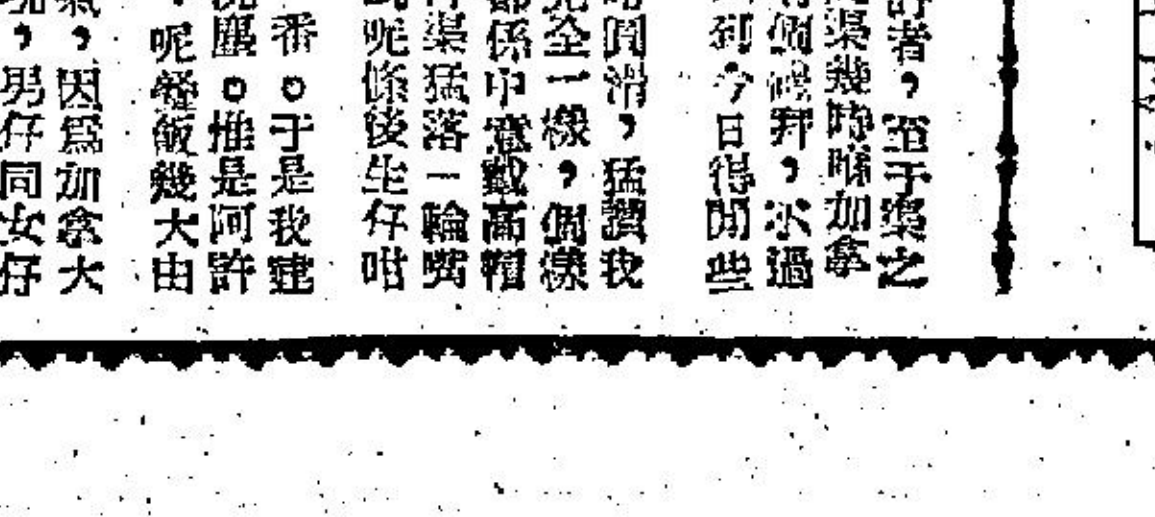 者，至于渠之
渠幾時喺加拿
個禮拜，不過
到今日得閒些
滑，猛讚我
完全一樣，個樣
都係中意戴高帽
渠猛落一輪嘴
呢係後生仔咁
番。于是我建
塵。惟是阿許
呢餐飯幾大由
氣，因爲加拿大
，男仔同女仔